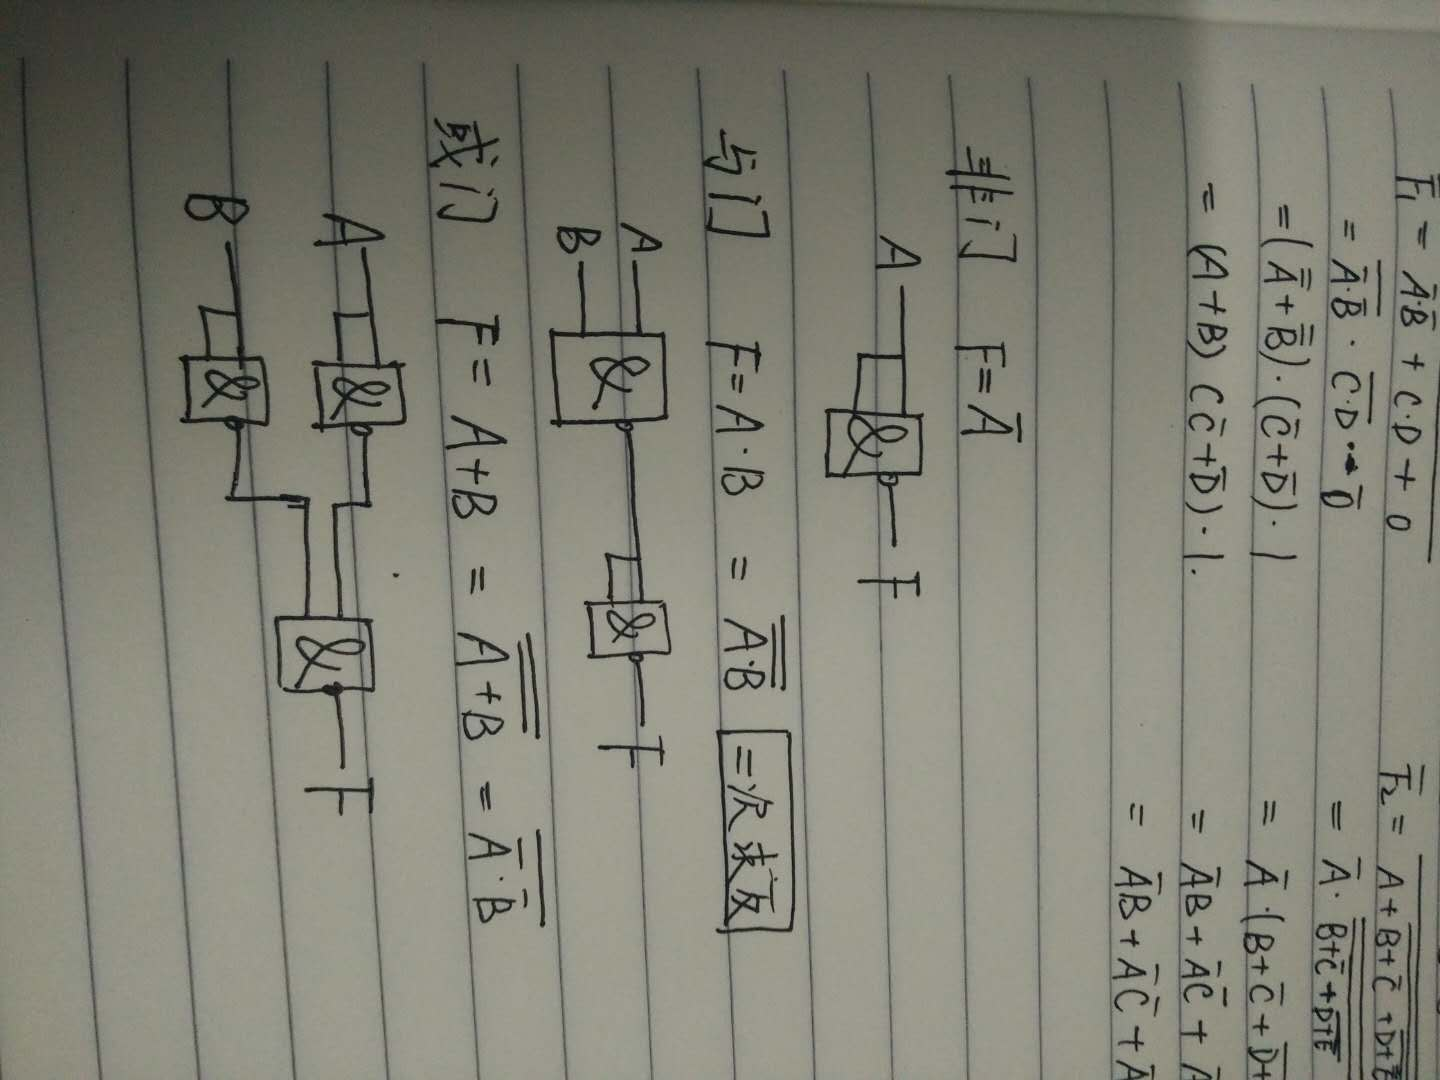 F̅₁ = \overline{A̅·B̅ + C·D + 0}
= \overline{A̅·B̅} · \overline{C·D} · 0̅
= (A̿ + B̿)·(C̅+D̅)·1
= (A+B) (C̅+D̅)·1.
F̅₂ = \overline{A + \overline{B+C̅ + \overline{D+E}}}
= A̅· \overline{\overline{B+C̅+\overline{D+E}}}
= A̅·(B+C̅+\overline{D+
= A̅B+A̅C̅+
= A̅B+A̅C̅+A̅
非门 F=A̅
A & F
与门 F=A·B = \overline{\overline{A·B}} 二次求反
A
B & & F
或门 F= A+B = \overline{\overline{A+B}} = \overline{A̅·B̅}
A &
& F
B &